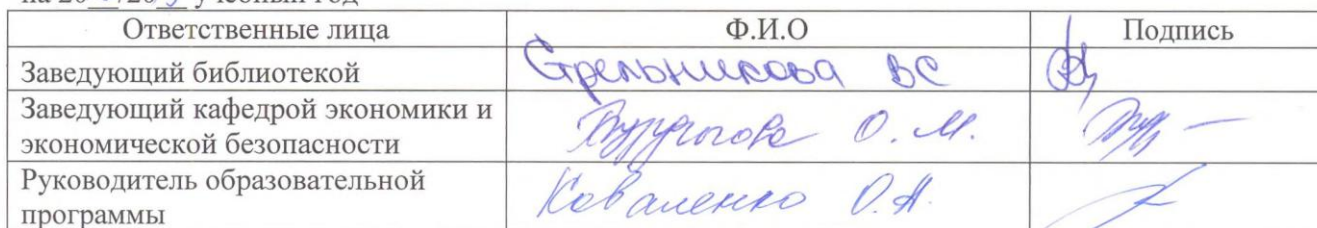 учебный год
Ответственные лица Ф.И.О Подпись
Заведующий библиотекой Стрельникова ВС
Заведующий кафедрой экономики и
экономической безопасности О. М.
Руководитель образовательной
программы Коваленко О.А.